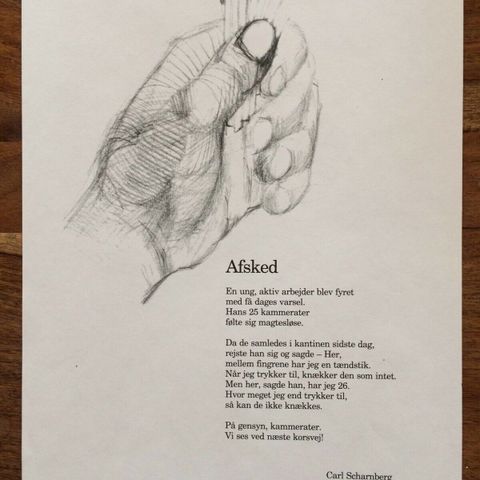 Afsked
En ung, aktiv arbejder blev fyret
med få dages varsel.
Hans 25 kammerater
følte sig magtesløse.
Da de samledes i kantinen sidste dag,
rejste han sig og sagde – Her,
mellem fingrene har jeg en tændstik.
Når jeg trykker til, knækker den som intet.
Men her, sagde han, har jeg 26.
Hvor meget jeg end trykker til,
så kan de ikke knækkes.
På gensyn, kammerater.
Vi ses ved næste korsvej!
Carl Scharnberg